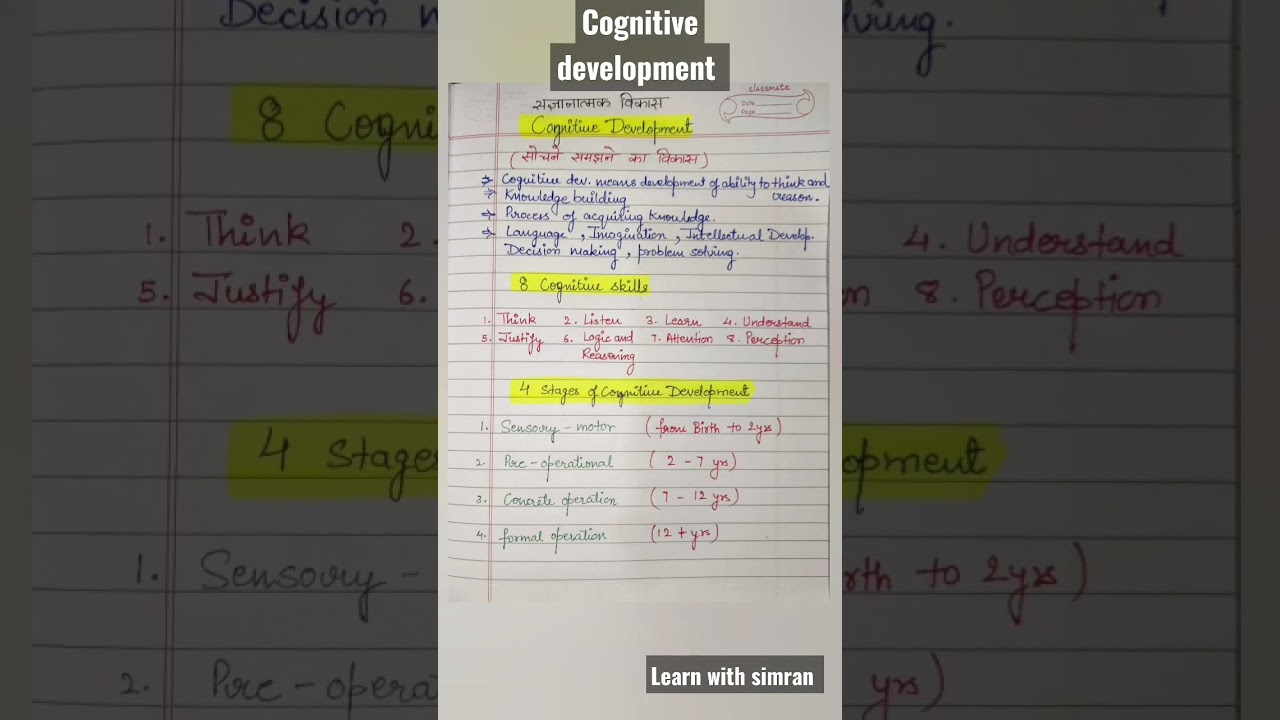 Cognitive
development
सज्ञानात्मक विकास
classmate
Date
Page
Cognitive Development
(सोचने समझने का विकास)
⇒ Cognitive dev. means development of ability to think and
reason.
⇒ Knowledge building
⇒ Process of acquiring knowledge.
⇒ Language, Imagination, Intellectual Develop.
Decision making, problem solving.
8 Cognitive skills
1. Think 2. Listen 3. Learn 4. Understand
5. Justify 6. Logic and 7. Attention 8. Perception
Reasoning
4 Stages of Cognitive Development
1. Sensory - motor (from Birth to 2yrs)
2. Pre - operational (2 - 7 yrs)
3. Concrete operation (7 - 12 yrs)
4. formal operation (12 + yrs)
Learn with simran